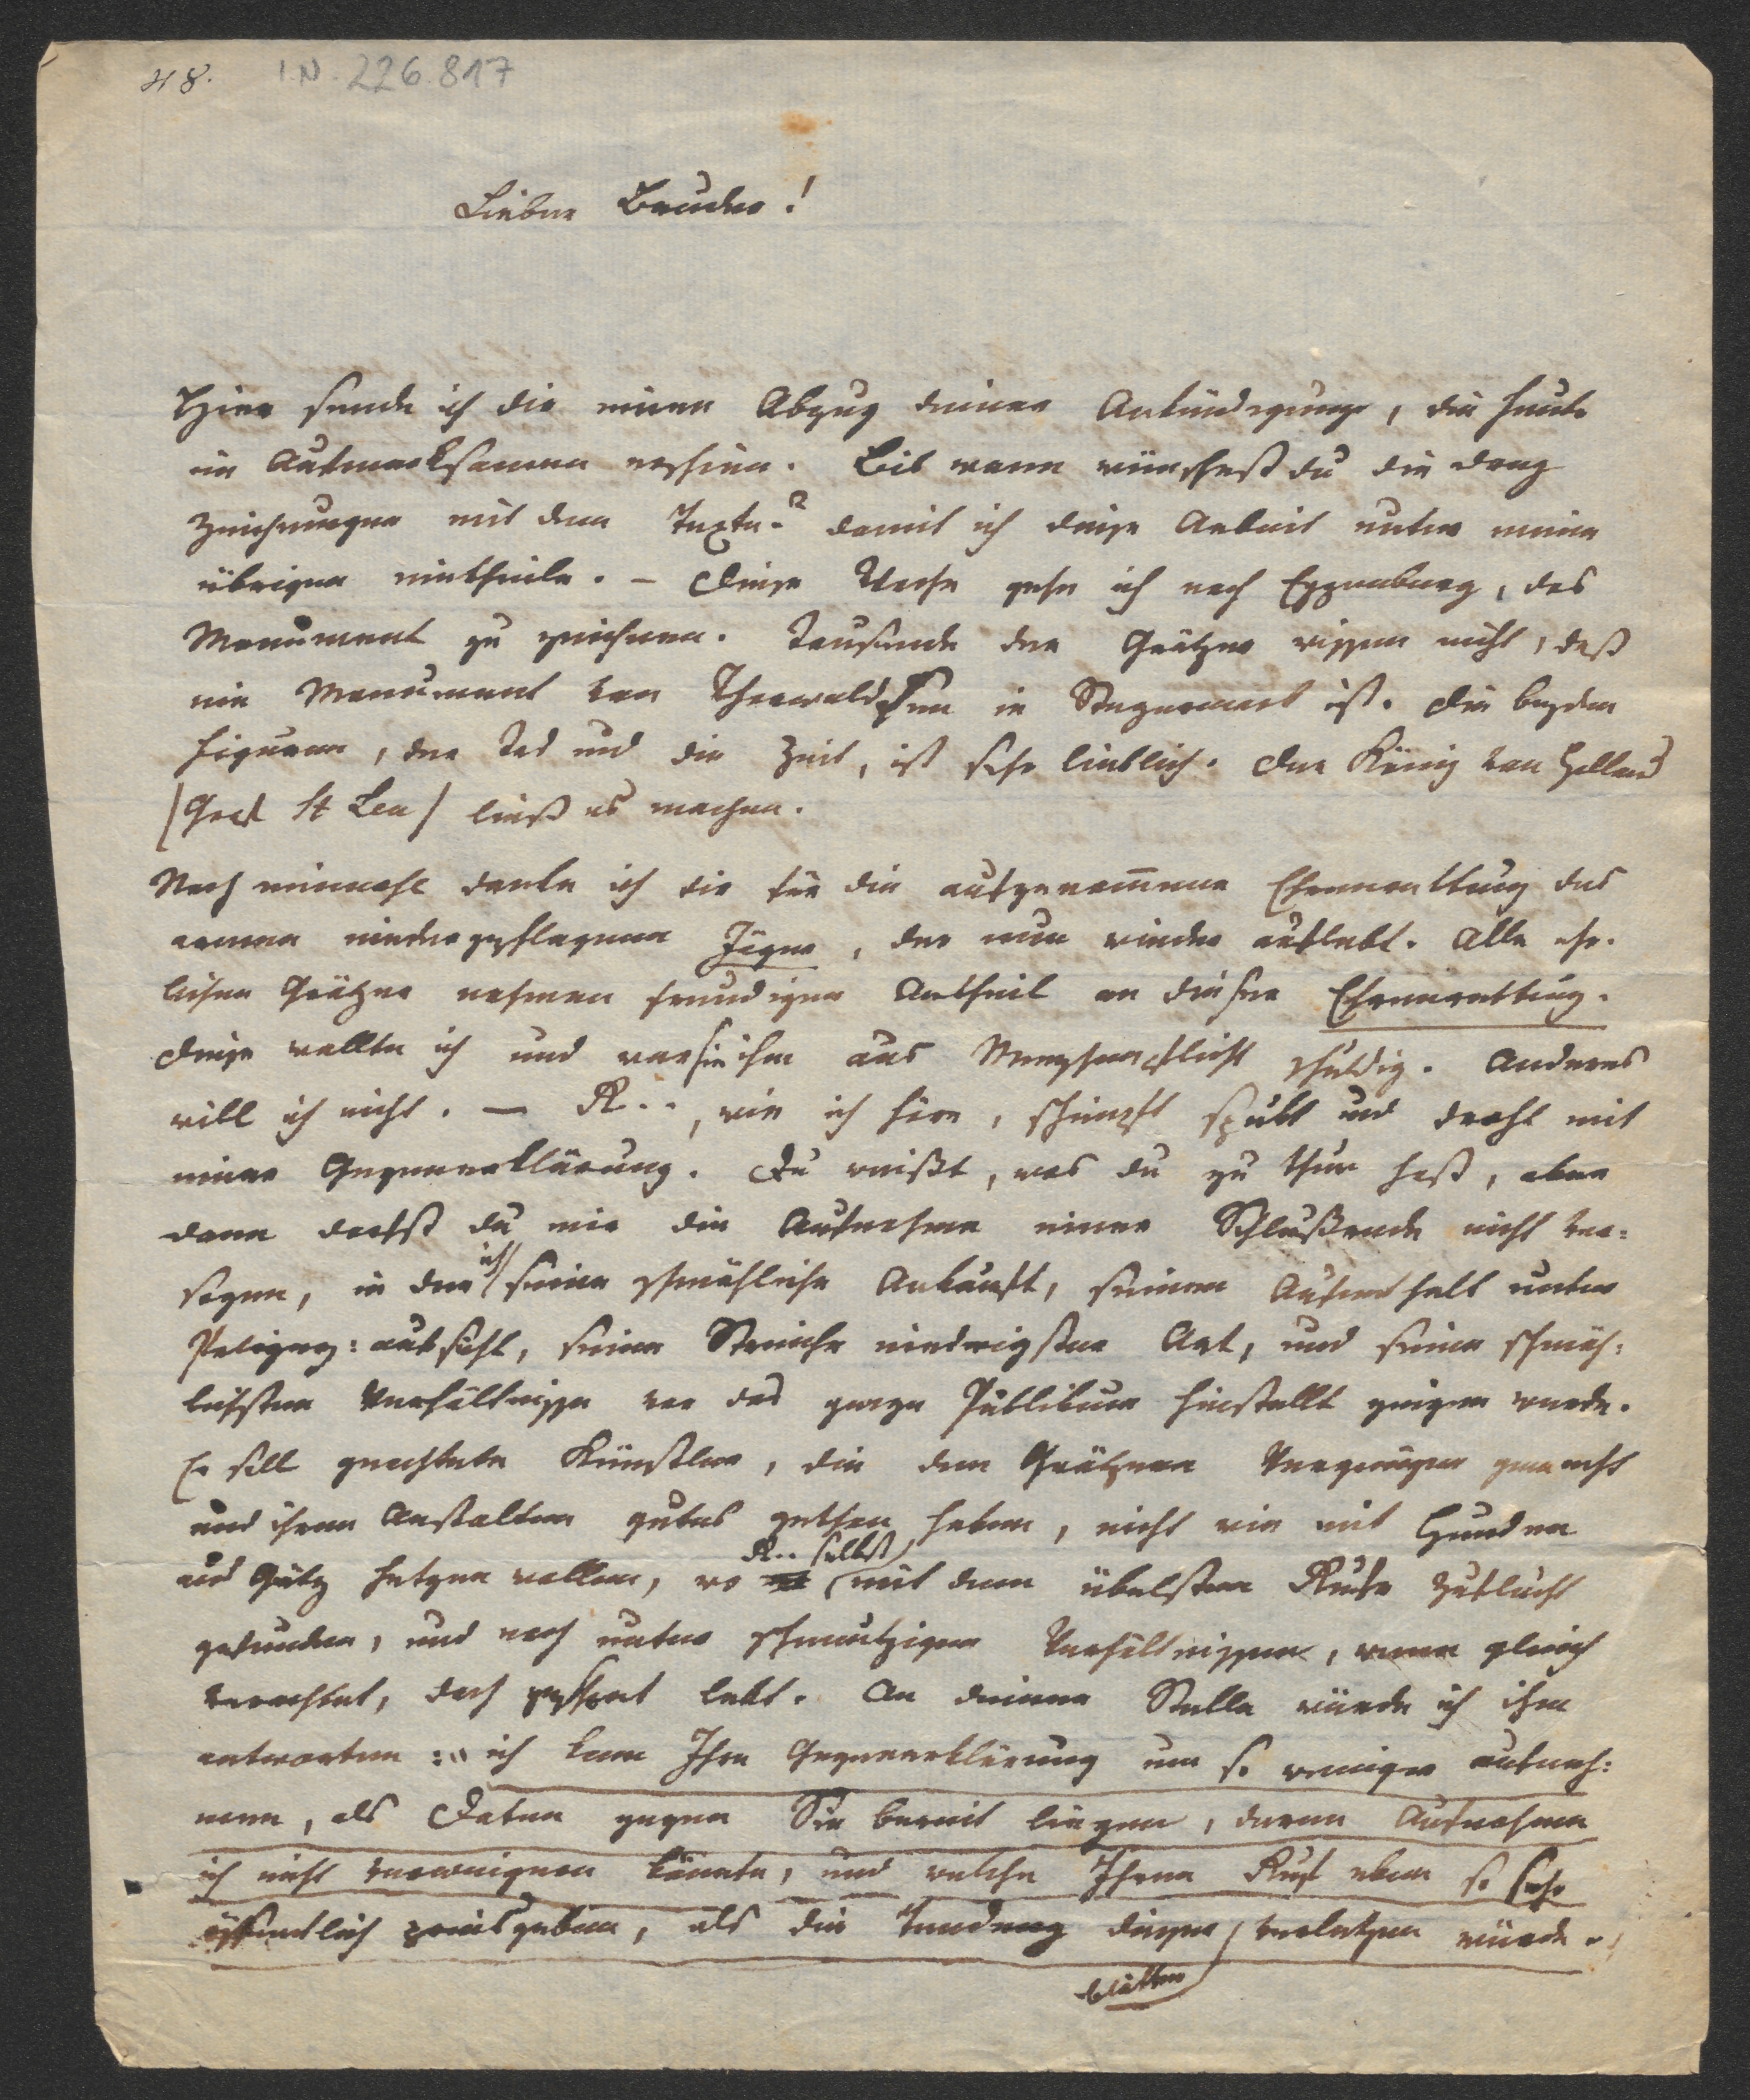 48. I.N. 226.817
Lieber Bruder!
Hier sende ich dir einen Abzug deiner Ankündigung, die heute
im Aufmerksamen erschien. Bis wann wünschest du die
Zeichnungen mit dem Texte? damit ich diese Arbeit unter meine
übrigen eintheile. – Diese Woche gehe ich nach Eggenberg, das
Monument zu zeichnen. Tausende der Grätzer wissen nicht, daß
ein Monument von Thorwaldsen in Steyermark ist. Die beyden
Figuren, der Tod und die Zeit, ist sehr lieblich. Der König von Holland
(Graf St Leu) ließ es machen.
Noch einmahl danke ich dir für die aufgenommene Ehrenrettung des
armen niedergeschlagenen Jäger, der nun wieder auflebt. Alle ehr-
lichen Grätzer nehmen freudigen Antheil an dieser Ehrenrettung.
Diese wollte ich und war sie ihm aus Menschenpflicht schuldig. Anderes
will ich nicht. – K.., wie ich höre, schimpft spukt und droht mit
einer Gegenerklärung. Du weißt, was du zu thun hast, aber
dann darfst du mir die Aufnahme einer Schlußrede nicht ver-
sagen, in der ich seine schmähliche Ankunft, seinen Aufenthalt unter
Polizey: aufsicht, seine Streiche niedrigster Art, und seine schmäh-
lichsten Verhältnisse vor das ganze Publikum hinstellt zeigen werde.
Er soll geachtete Künstler, die den Grätzern Vergnügen gemacht
und ihren Anstalten gutes gethan haben, nicht wie mit Hunden
aus Grätz hetzen wollen, wo K.. selbst mit dem übelsten Rufe Zuflucht
gefunden, und noch unter schmutzigen Verhältnissen, wenn gleich
verachtet, doch lebt. An deiner Stelle würde ich ihm
antworten: „ich kann Ihre Gegenerklärung um so weniger aufneh-
men, als Daten gegen Sie bereit liegen, deren Aufnahme
ich nicht verweigern könnte, und welche Ihren Ruf eben so sehr
öffentlich preisgeben, als die Tendenz dieser Blätter verletzen würde.“